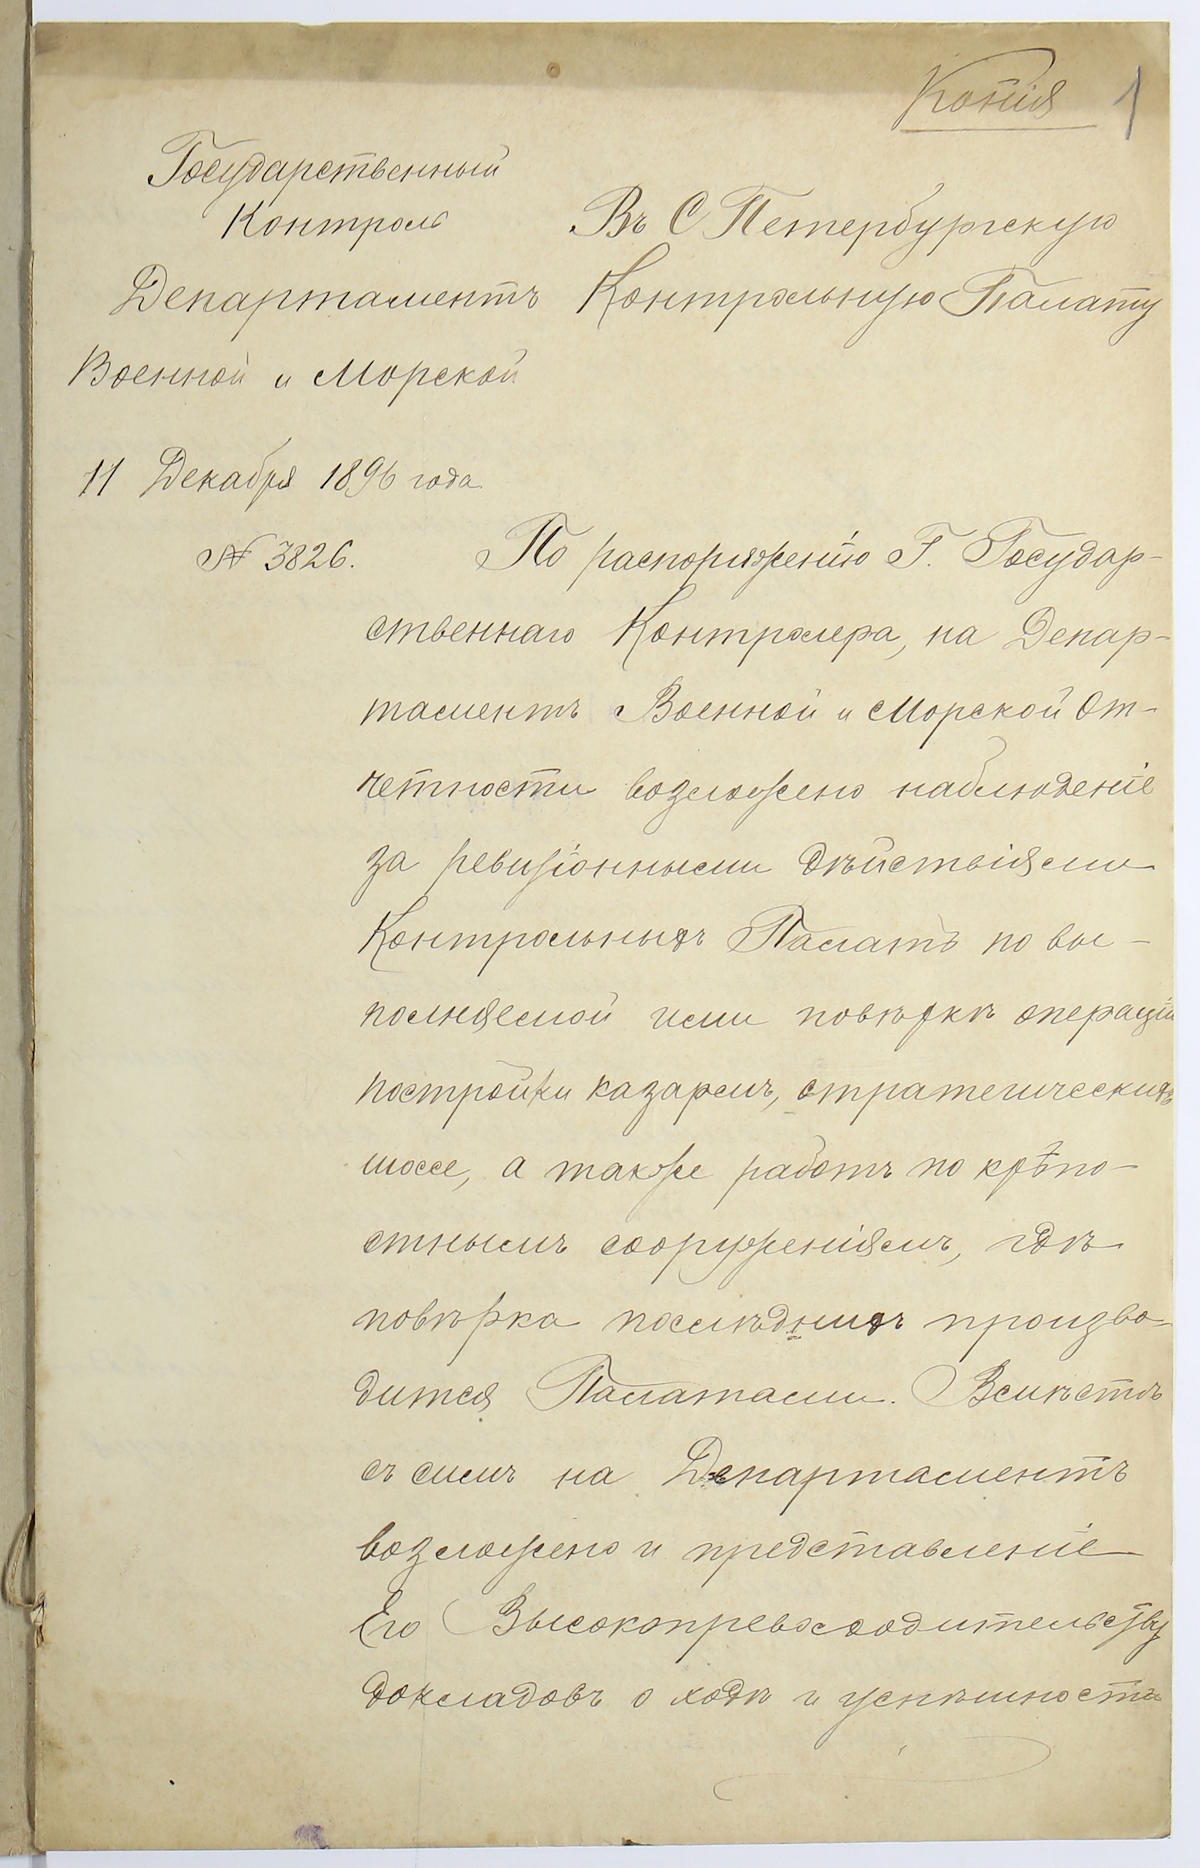 Копія 1
Государственный
Контроль
Департаментъ
Военной и Морской
11 Декабря 1896 года
№ 3826.
Въ С Петербургскую
Контрольную Палату
По распоряженію Г. Государ-
ственнаго Контролера, на Депар-
таментъ Военной и Морской От-
четности возложено наблюденіе
за ревизіонными дѣйствіями
Контрольныхъ Палатъ по вы-
полняемой ими повѣркѣ операцій
постройки казармъ, стратегическихъ
шоссе, а также работъ по крѣпо-
стнымъ сооруженіямъ, гдѣ
повѣрка послѣднихъ произво-
дится Палатами. Вмѣстѣ
съ симъ на Департаментъ
возложено и представленіе
Его Высокопревосходительству
докладовъ о ходѣ и успѣшности